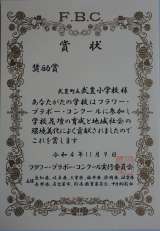 F.B.C.
賞状
奨励賞
武豊町立武豊小学校 様
あなたがたの学校はフラワー・
ブラボー・コンクールに参加し
学校花壇の育成と地域社会の
環境美化によく貢献されましたので
これを賞します
令和4年11月9日
フラワー・ブラボー・コンクール実行委員会